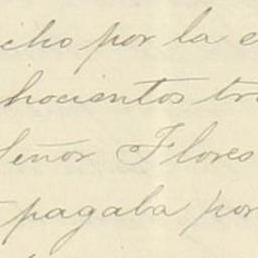 cho por la e
hocientos tr
Señor Flores
pagaba por